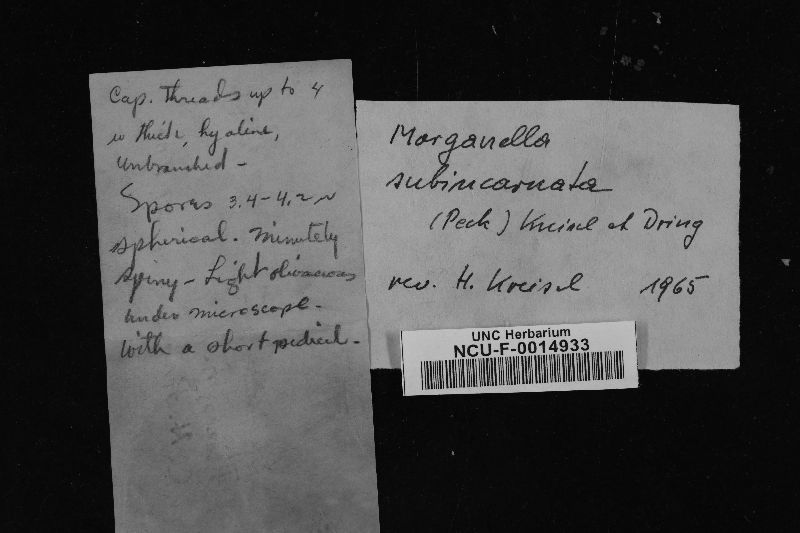 Cap. threads up to 4
µ thick, hyaline,
unbranched -
Spores 3.4 - 4.2 µ
spherical. Minutely
spiny - Light olivaceous
under microscope -
With a short pedicel -
Morganella
subincarnata
(Peck) Kreisel et Dring
rev. H. Kreisel 1965
UNC Herbarium
NCU-F-0014933